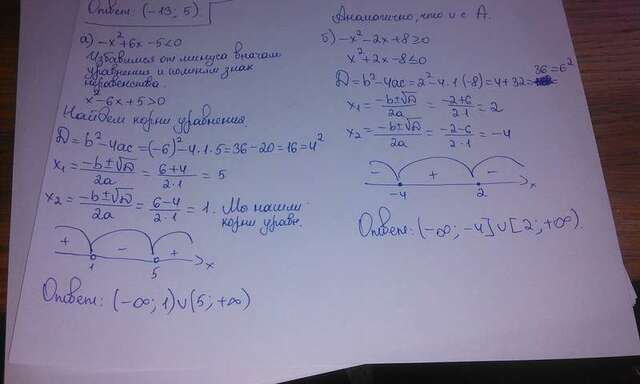 Ответ: (-13; 5).
а) -x²+6x-5<0
Избавимся от минуса вначале
уравнения и поменяем знак
неравенства.
x²-6x+5>0
Найдем корни уравнения.
D=b²-4ac=(-6)²-4·1·5=36-20=16=4²
x₁=(-b±√D)/2a=(6+4)/(2·1)=5
x₂=(-b±√D)/2a=(6-4)/(2·1)=1. Мы нашли
корни уравн.
+ - +
1 5 x
Ответ: (-∞; 1)∪(5; +∞)
Аналогично, что и с А.
б) -x²-2x+8≥0
x²+2x-8≤0
D=b²-4ac=2²-4·1·(-8)=4+32=36=6²
x₁=(-b±√D)/2a=(-2+6)/(2·1)=2
x₂=(-b±√D)/2a=(-2-6)/(2·1)=-4
- + -
-4 2 x
Ответ: (-∞; -4]∪[2; +∞).